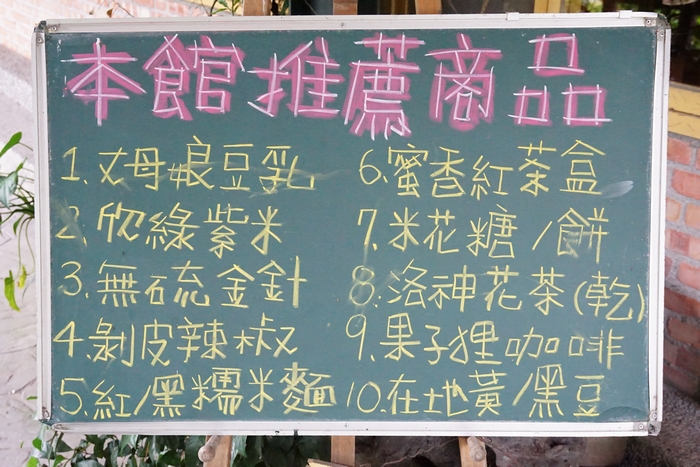 本館推薦商品
1.丈母娘豆乳
2.欣綠紫米
3.無硫金針
4.剝皮辣椒
5.紅/黑糯米麵
6.蜜香紅茶盒
7.米花糖/餅
8.洛神花茶(乾)
9.果子狸咖啡
10.在地黃/黑豆